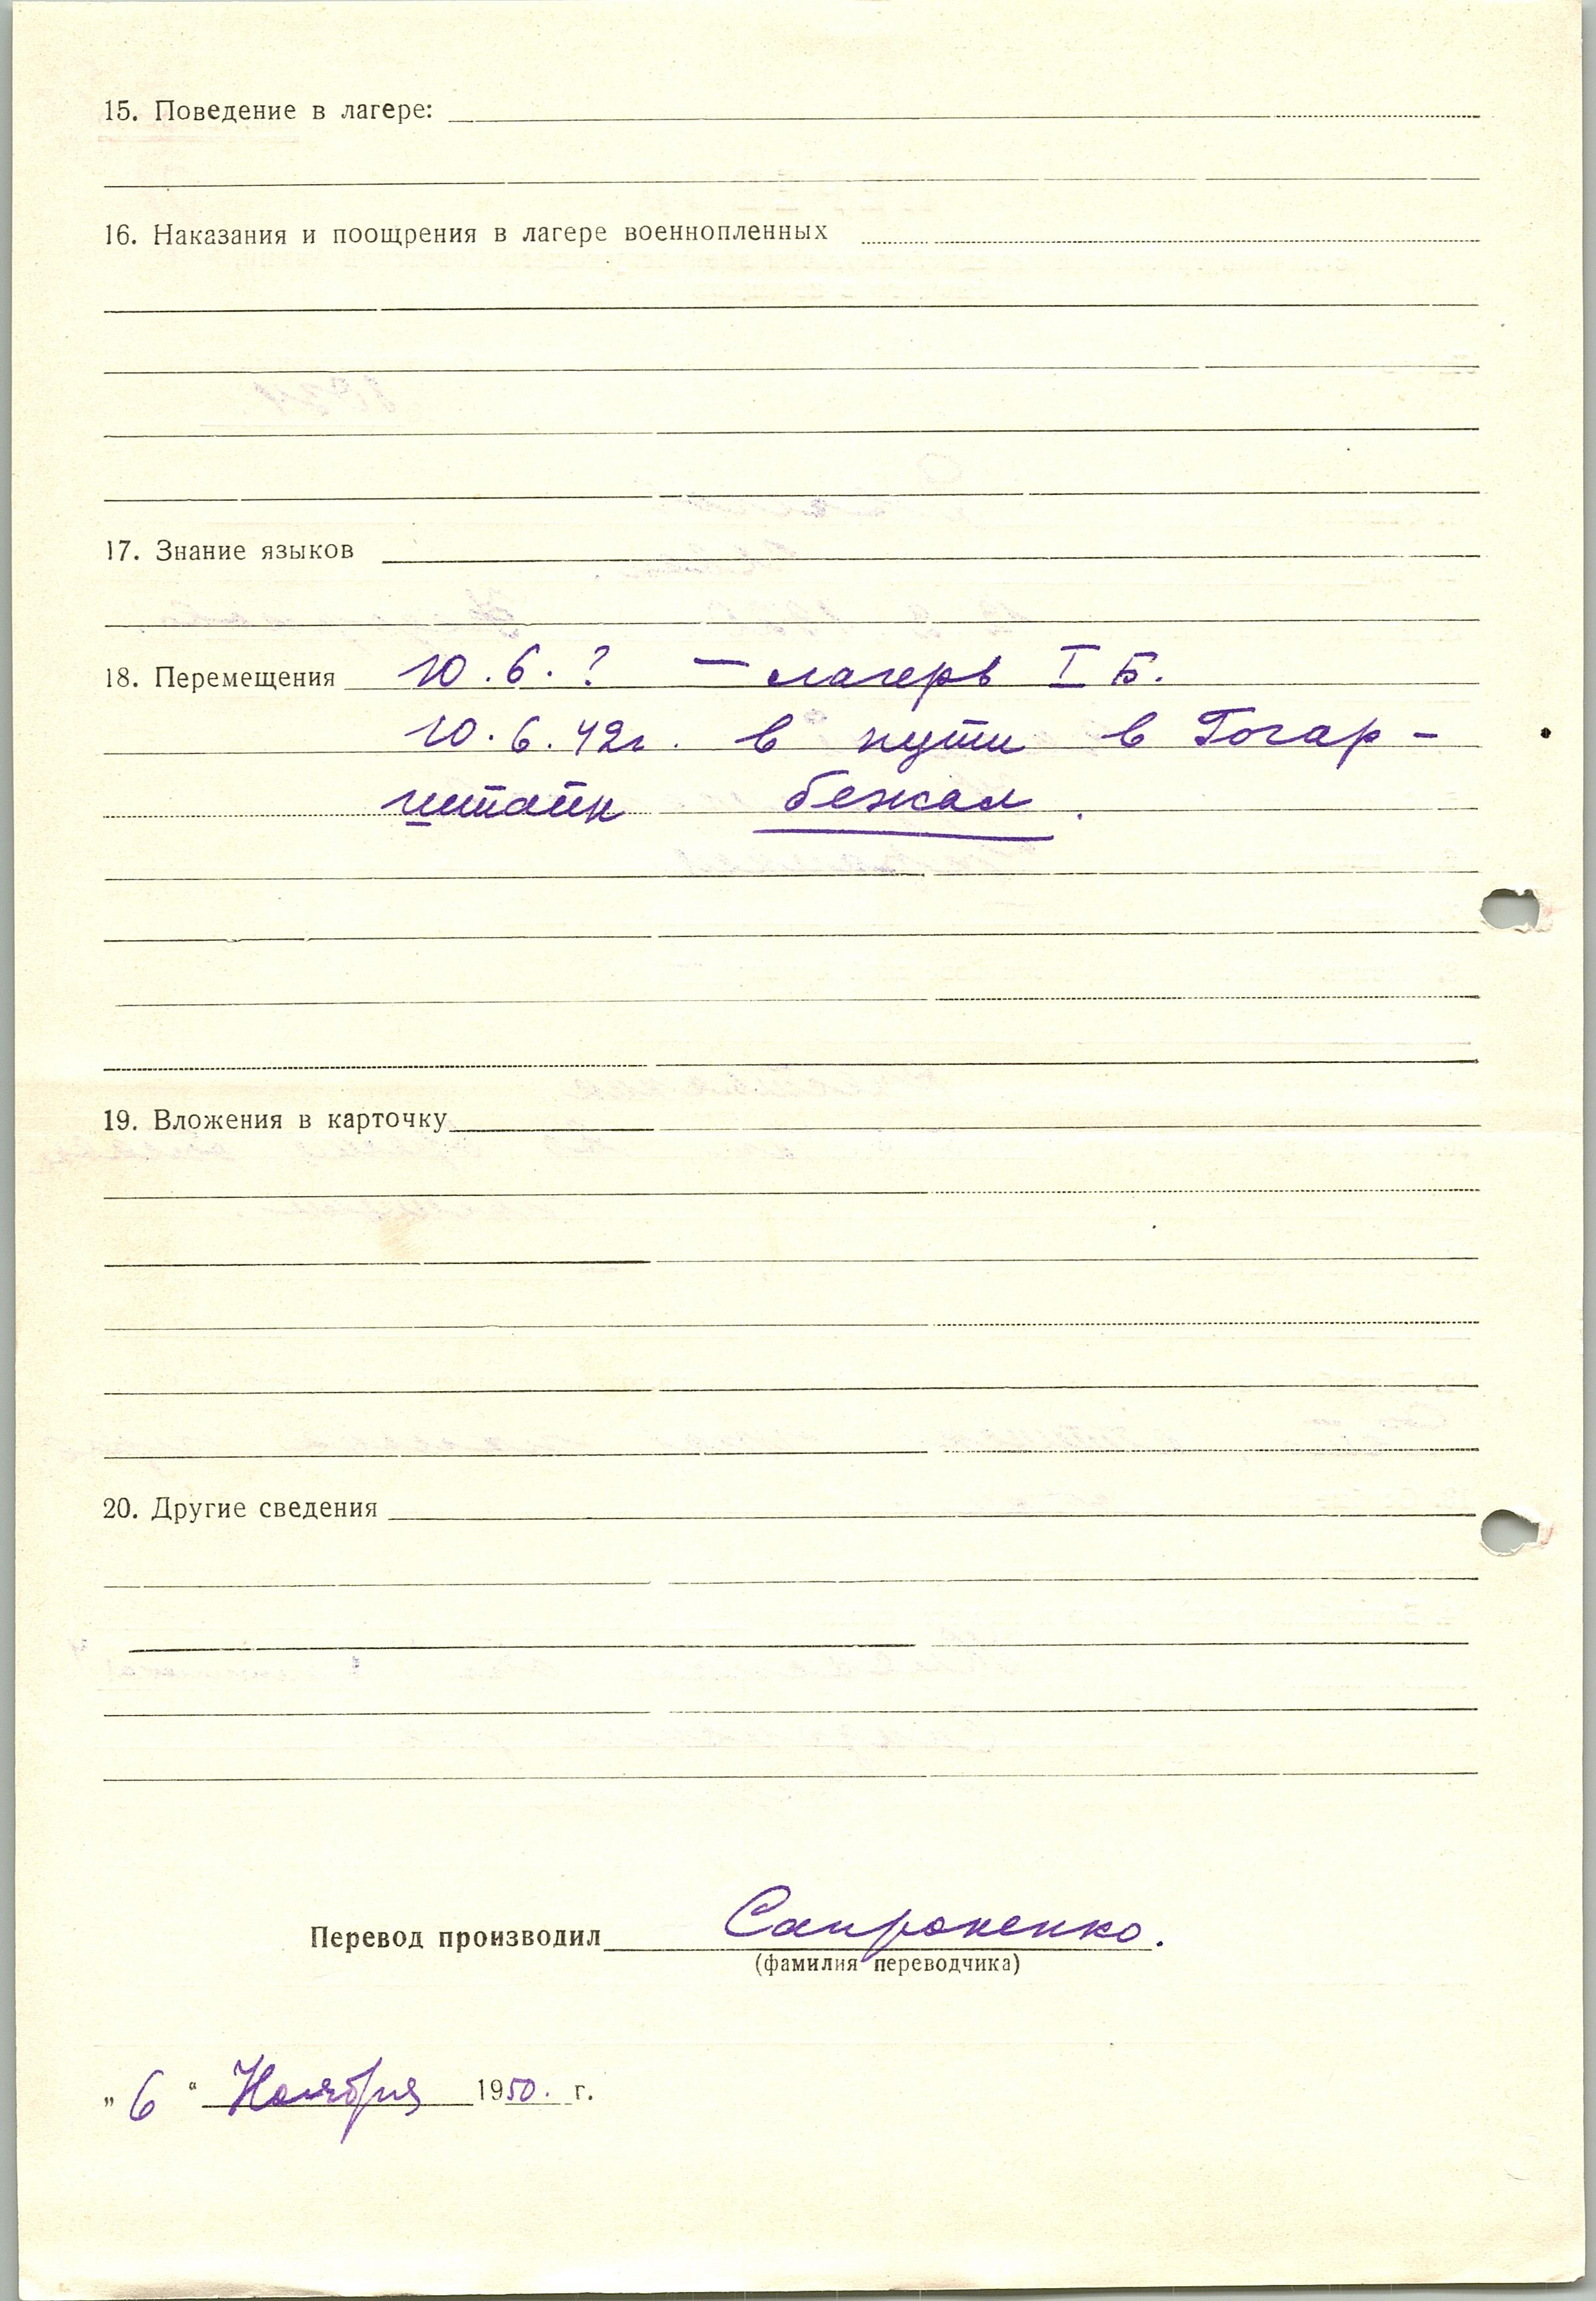 15. Поведение в лагере:
16. Наказания и поощрения в лагере военнопленных
17. Знание языков
18. Перемещения 10.6.? — лагерь I Б.
10.6.42г. в пути в Гогар-
штайн бежал.
19. Вложения в карточку
20. Другие сведения
Перевод производил Сапроненко.
(фамилия переводчика)
„6“ Ноября 1950. г.